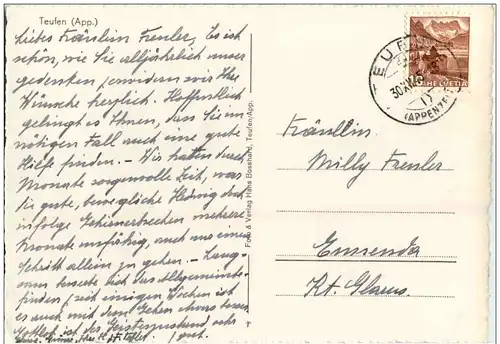 Teufen (App.)
Liebes Fräulein Fresler, Es ist
schön, wie Sie alljährlich unser
gedenken, erwidern wir Ihre
Wünsche herzlich. Hoffentlich
gelingt es Ihnen, dass Sie im
nötigen Fall auch eine gute
Hilfe finden. – Wir hatten durch
Monate sorgenvolle Zeit, was
die gute, bewegliche Hedwig doch
infolge Gehirnerbrechen mehrere
Monate unfähig, auch nur einen
Schritt allein zu gehen. – Lang-
sam besserte sich das Allgemeinbe-
finden, seit einigen Wochen ist
es auch mit dem Gehen etwas besser.
Gottlob ist der Geisteszustand sehr
gut.
Foto & Verlag Hans Bosshard, Teufen/App.
TEUFEN
30.XII.
(APPENZELL)
HELVETIA
Fräulein
Milly Fresler
Ennenda
Kt. Glarus